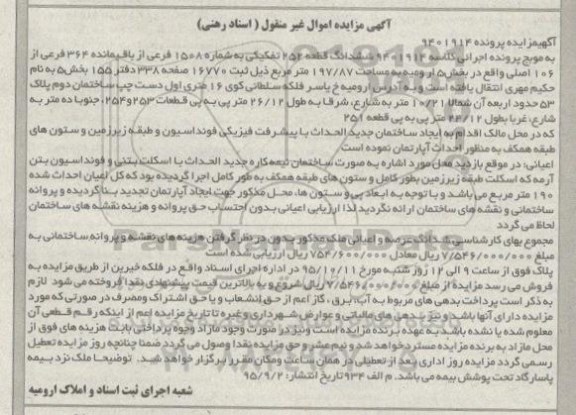 آگهی مزایده اموال غیر منقول ( اسناد رهنی )
آگهیمزایده پرونده ۹۴۰۱۹۱۴
به موجب پرونده اجرائی کلاسه ۹۴۰۱۹۱۴ ششدانگ قطعه ۲۵۲ تفکیکی به شماره ۱۵۰۸ فرعی از باقیمانده ۳۶۴ فرعی از
۱۰۶ اصلی واقع در بخش۵ ارومیه به مساحت ۱۹۷/۸۷ متر مربع ذیل ثبت ۱۶۷۷۰ صفحه ۳۳۸ دفتر ۱۵۵ بخش۵ به نام
حکیم مهری انتقال یافته است و به آدرس ارومیه خ یاسر فلکه سلمانی کوی ۱۶ متری اول دست چپ ساختمان دوم پلاک
۵۳ حدود اربعه آن شمالا ۱۰/۲۱ متر به شارع، شرقا به طول ۲۶/۱۲ متر پی به پی قطعات ۲۵۳ و۲۵۴، جنوبا ده متر به
شارع، غربا بطول ۲۴/۱۲ متر پی به پی قطعه ۲۵۱
که در محل مالک اقدام به ایجاد ساختمان جدید الحداث با پیشرفت فیزیکی فونداسیون و طبقه زیرزمین و ستون های
طبقه همکف به منظور احداث آپارتمان نموده است
اعیانی، در موقع بازدید محل مورد اشاره به صورت ساختمان نیمه کاره جدید الحداث با اسکلت بتنی و فونداسیون بتن
آرمه که اسکلت طبقه زیرزمین بطور کامل و ستون های طبقه همکف به طور کامل اجرا گردیده بود که کل اعیان احداث شده
۱۹۰ متر مربع می باشد و با توجه به ابعاد پی و ستون ها، محل مذکور جهت ایجاد آپارتمان تجدید بنا گردیده و پروانه
ساختمانی و نقشه های ساختمان ارائه نگردید لذا ارزیابی اعیانی بدون احتساب حق پروانه و هزینه نقشه های ساختمان
لحاظ می گردد
مجموع بهای کارشناسی ششدانگ عرصه و اعیانی ملک مذکور بدون در نظر گرفتن هزینه های نقشه و پروانه ساختمانی به
مبلغ ۷/۵۴۶/۰۰۰/۰۰۰ ریال معادل ۷۵۴/۶۰۰/۰۰۰ ریال ارزیابی شده است
پلاک فوق از ساعت ۹ الی ۱۲ روز شنبه مورخ ۹۵/۱۰/۱۱ در اداره اجرای اسناد واقع در فلکه خیرین از طریق مزایده به
فروش می رسد مزایده از مبلغ ۷/۵۴۶/۰۰۰/۰۰۰ ریال شروع و به بالاترین قیمت پیشنهادی نقدا فروخته می شود لازم
به ذکر است پرداخت بدهی های مربوط به آب، برق ، گاز اعم از حق انشعاب و یا حق اشتراک ومصرف در صورتی که مورد
مزایده دارای آنها باشد و نیز بدهی های مالیاتی و عوارض شهرداری و غیره تا تاریخ مزایده اعم از اینکه رقم قطعی آن
معلوم شده یا نشده باشد به عهده برنده مزایده است ونیز در صورت وجود مازاد وجوه پرداختی بابت هزینه های فوق از
محل مازاد به برنده مزایده مسترد خواهد شد و نیم عشر و حق مزایده نقدا وصول می گردد ضمنا چنانچه روز مزایده تعطیل
رسمی گردد مزایده روز اداری بعد از تعطیلی در همان ساعت ومکان مقرر برگزار خواهد شد. توضیحا ملک نزد بیمه
پاسارگاد تحت پوشش بیمه می باشد. م الف ۹۳۴ تاریخ انتشار: ۹۵/۹/۲
شعبه اجرای ثبت اسناد و املاک ارومیه